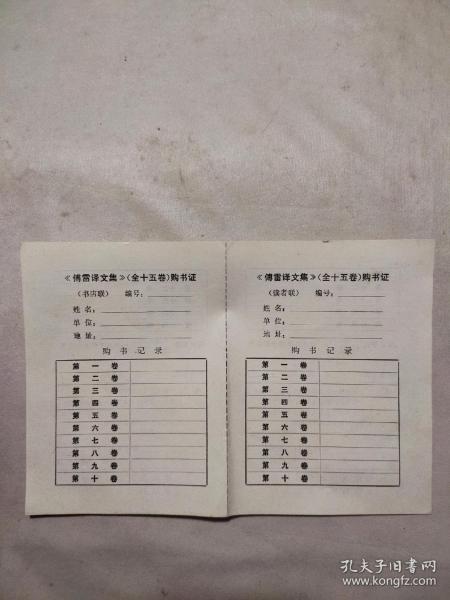 《傅雷译文集》(全十五卷)购书证
(书店联) 编号:
姓名:
单位:
地址:
购书记录
第一卷
第二卷
第三卷
第四卷
第五卷
第六卷
第七卷
第八卷
第九卷
第十卷
《傅雷译文集》(全十五卷)购书证
(读者联) 编号:
姓名:
单位:
地址:
购书记录
第一卷
第二卷
第三卷
第四卷
第五卷
第六卷
第七卷
第八卷
第九卷
第十卷
孔夫子旧书网
www.kongfz.com